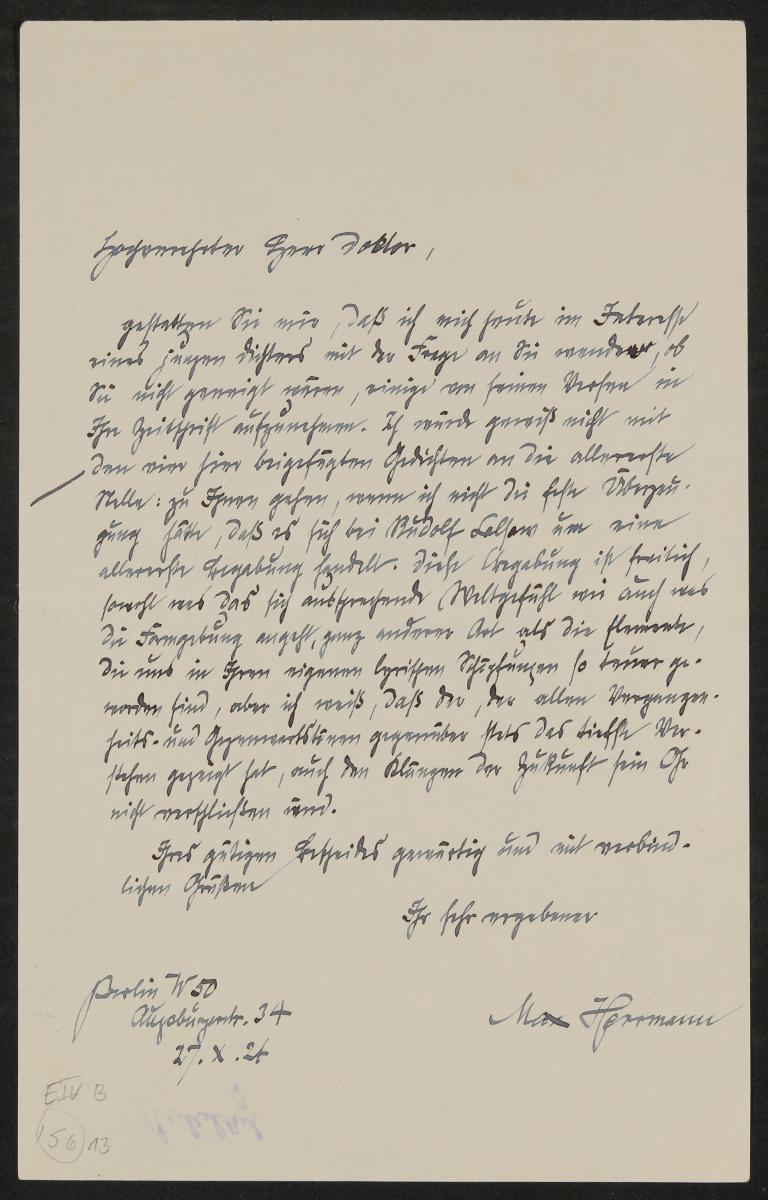 Hochverehrter Herr Doktor,
gestatten Sie mir, daß ich mich heute im Interesse
eines jungen Dichters mit der Frage an Sie wende, ob
Sie nicht geneigt wären, einige von seinen Versen in
Ihre Zeitschrift aufzunehmen. Ich würde gewiß nicht mit
den vier hier beigefügten Gedichten an die allererste
Stelle: zu Ihnen gehen, wenn ich nicht die feste Überzeu-
gung hätte, daß es sich bei Rudolf um eine
allererste Begabung handelt. Diese Begabung ist freilich,
sowohl was das sich aussprechende Weltgefühl wie auch was
die Formgebung angeht, ganz anderer Art als die Elemente,
die uns in Ihren eigenen lyrischen Schöpfungen so teuer ge-
worden sind, aber ich weiß, daß der, der allen Vergangen-
heits- und Gegenwartstönen gegenüber stets das tiefste Ver-
stehen gezeigt hat, auch den Klängen der Zukunft sein Ohr
nicht verschließen wird.
Ihres gütigen Bescheides gewärtig und mit verbind-
lichen Grüßen
Ihr sehr ergebener
Berlin W 50
Augsburgerstr. 34
27. X. 24
Max Herrmann
E IV B
156 13